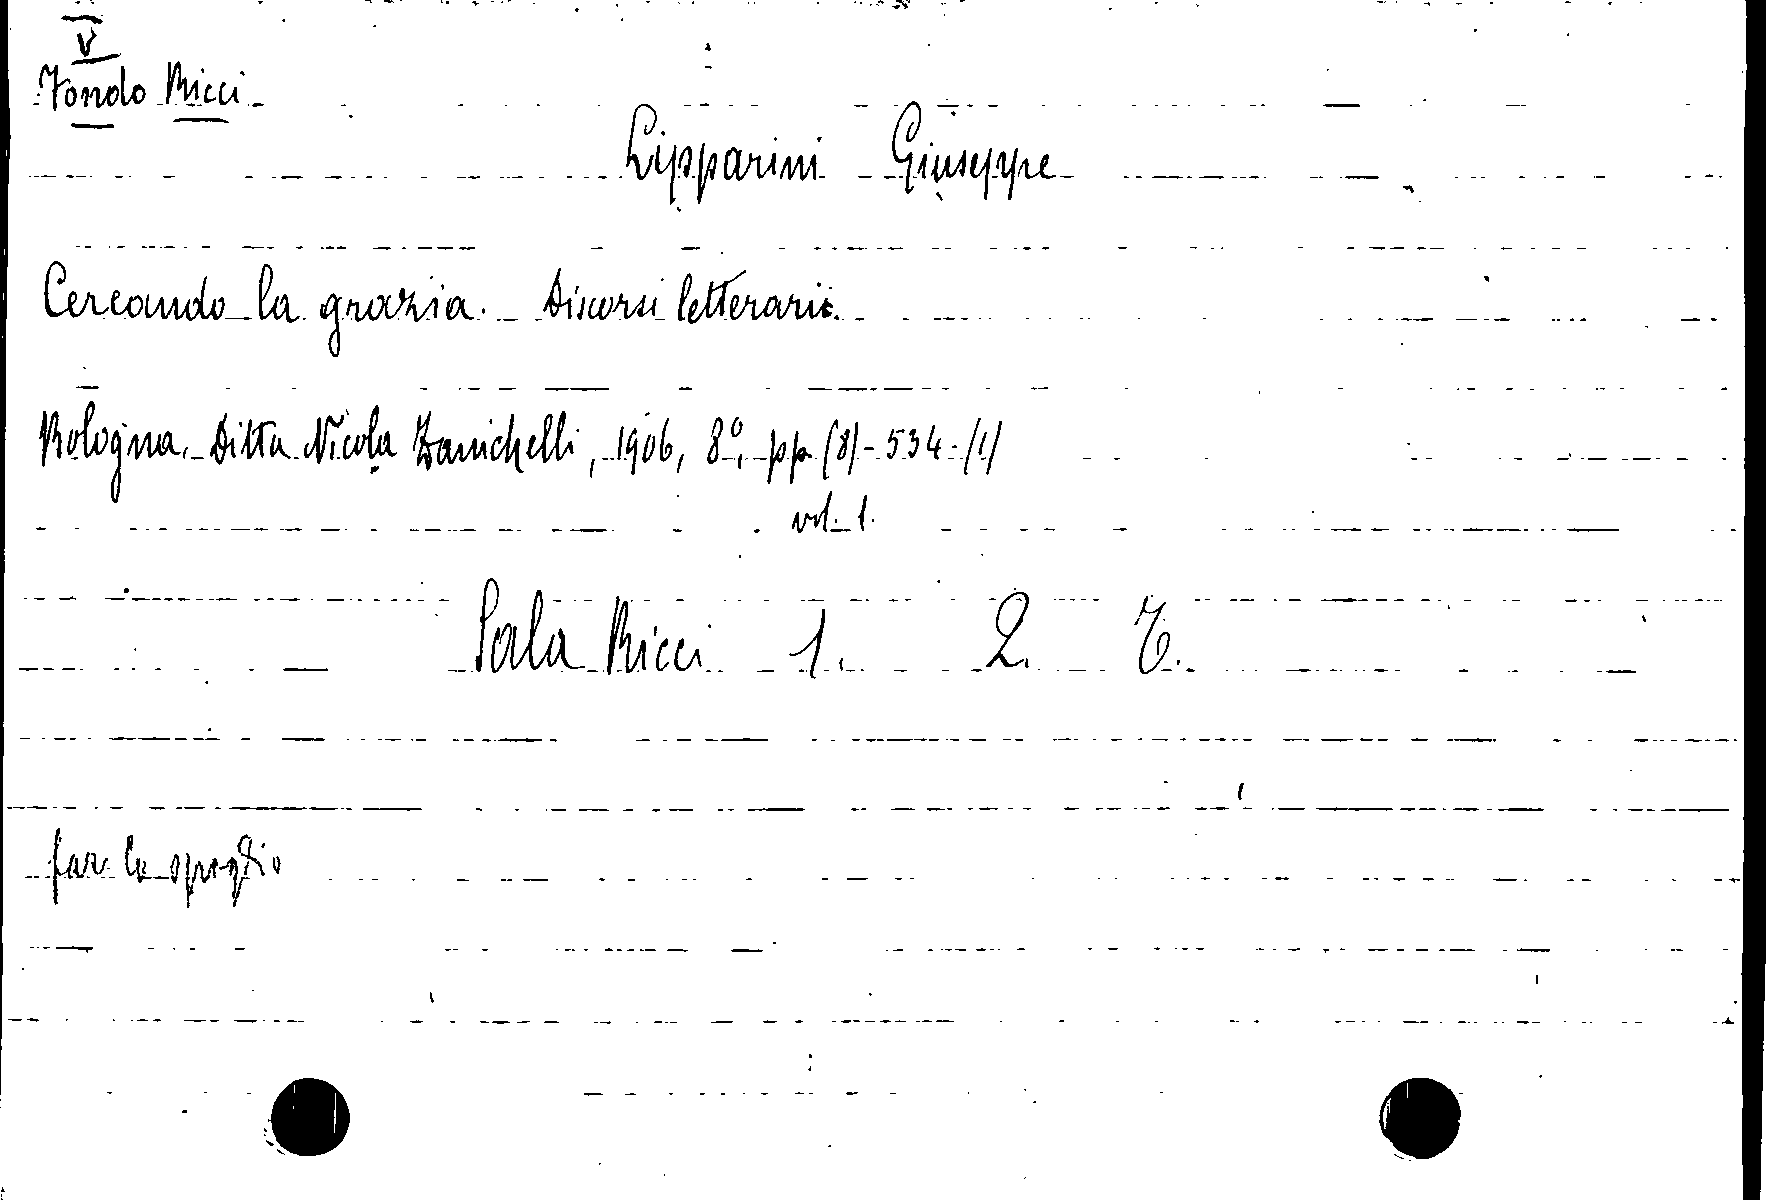 V
Fondo Ricci
Lipparini Giuseppe
Cercando la grazia. Discorsi letterari.
Bologna. Ditta Nicola Zanichelli, 1906, 8º, pp. (8)-534-(1)
vol. 1.
Sala Ricci 1. 2. 7.
far lo spoglio